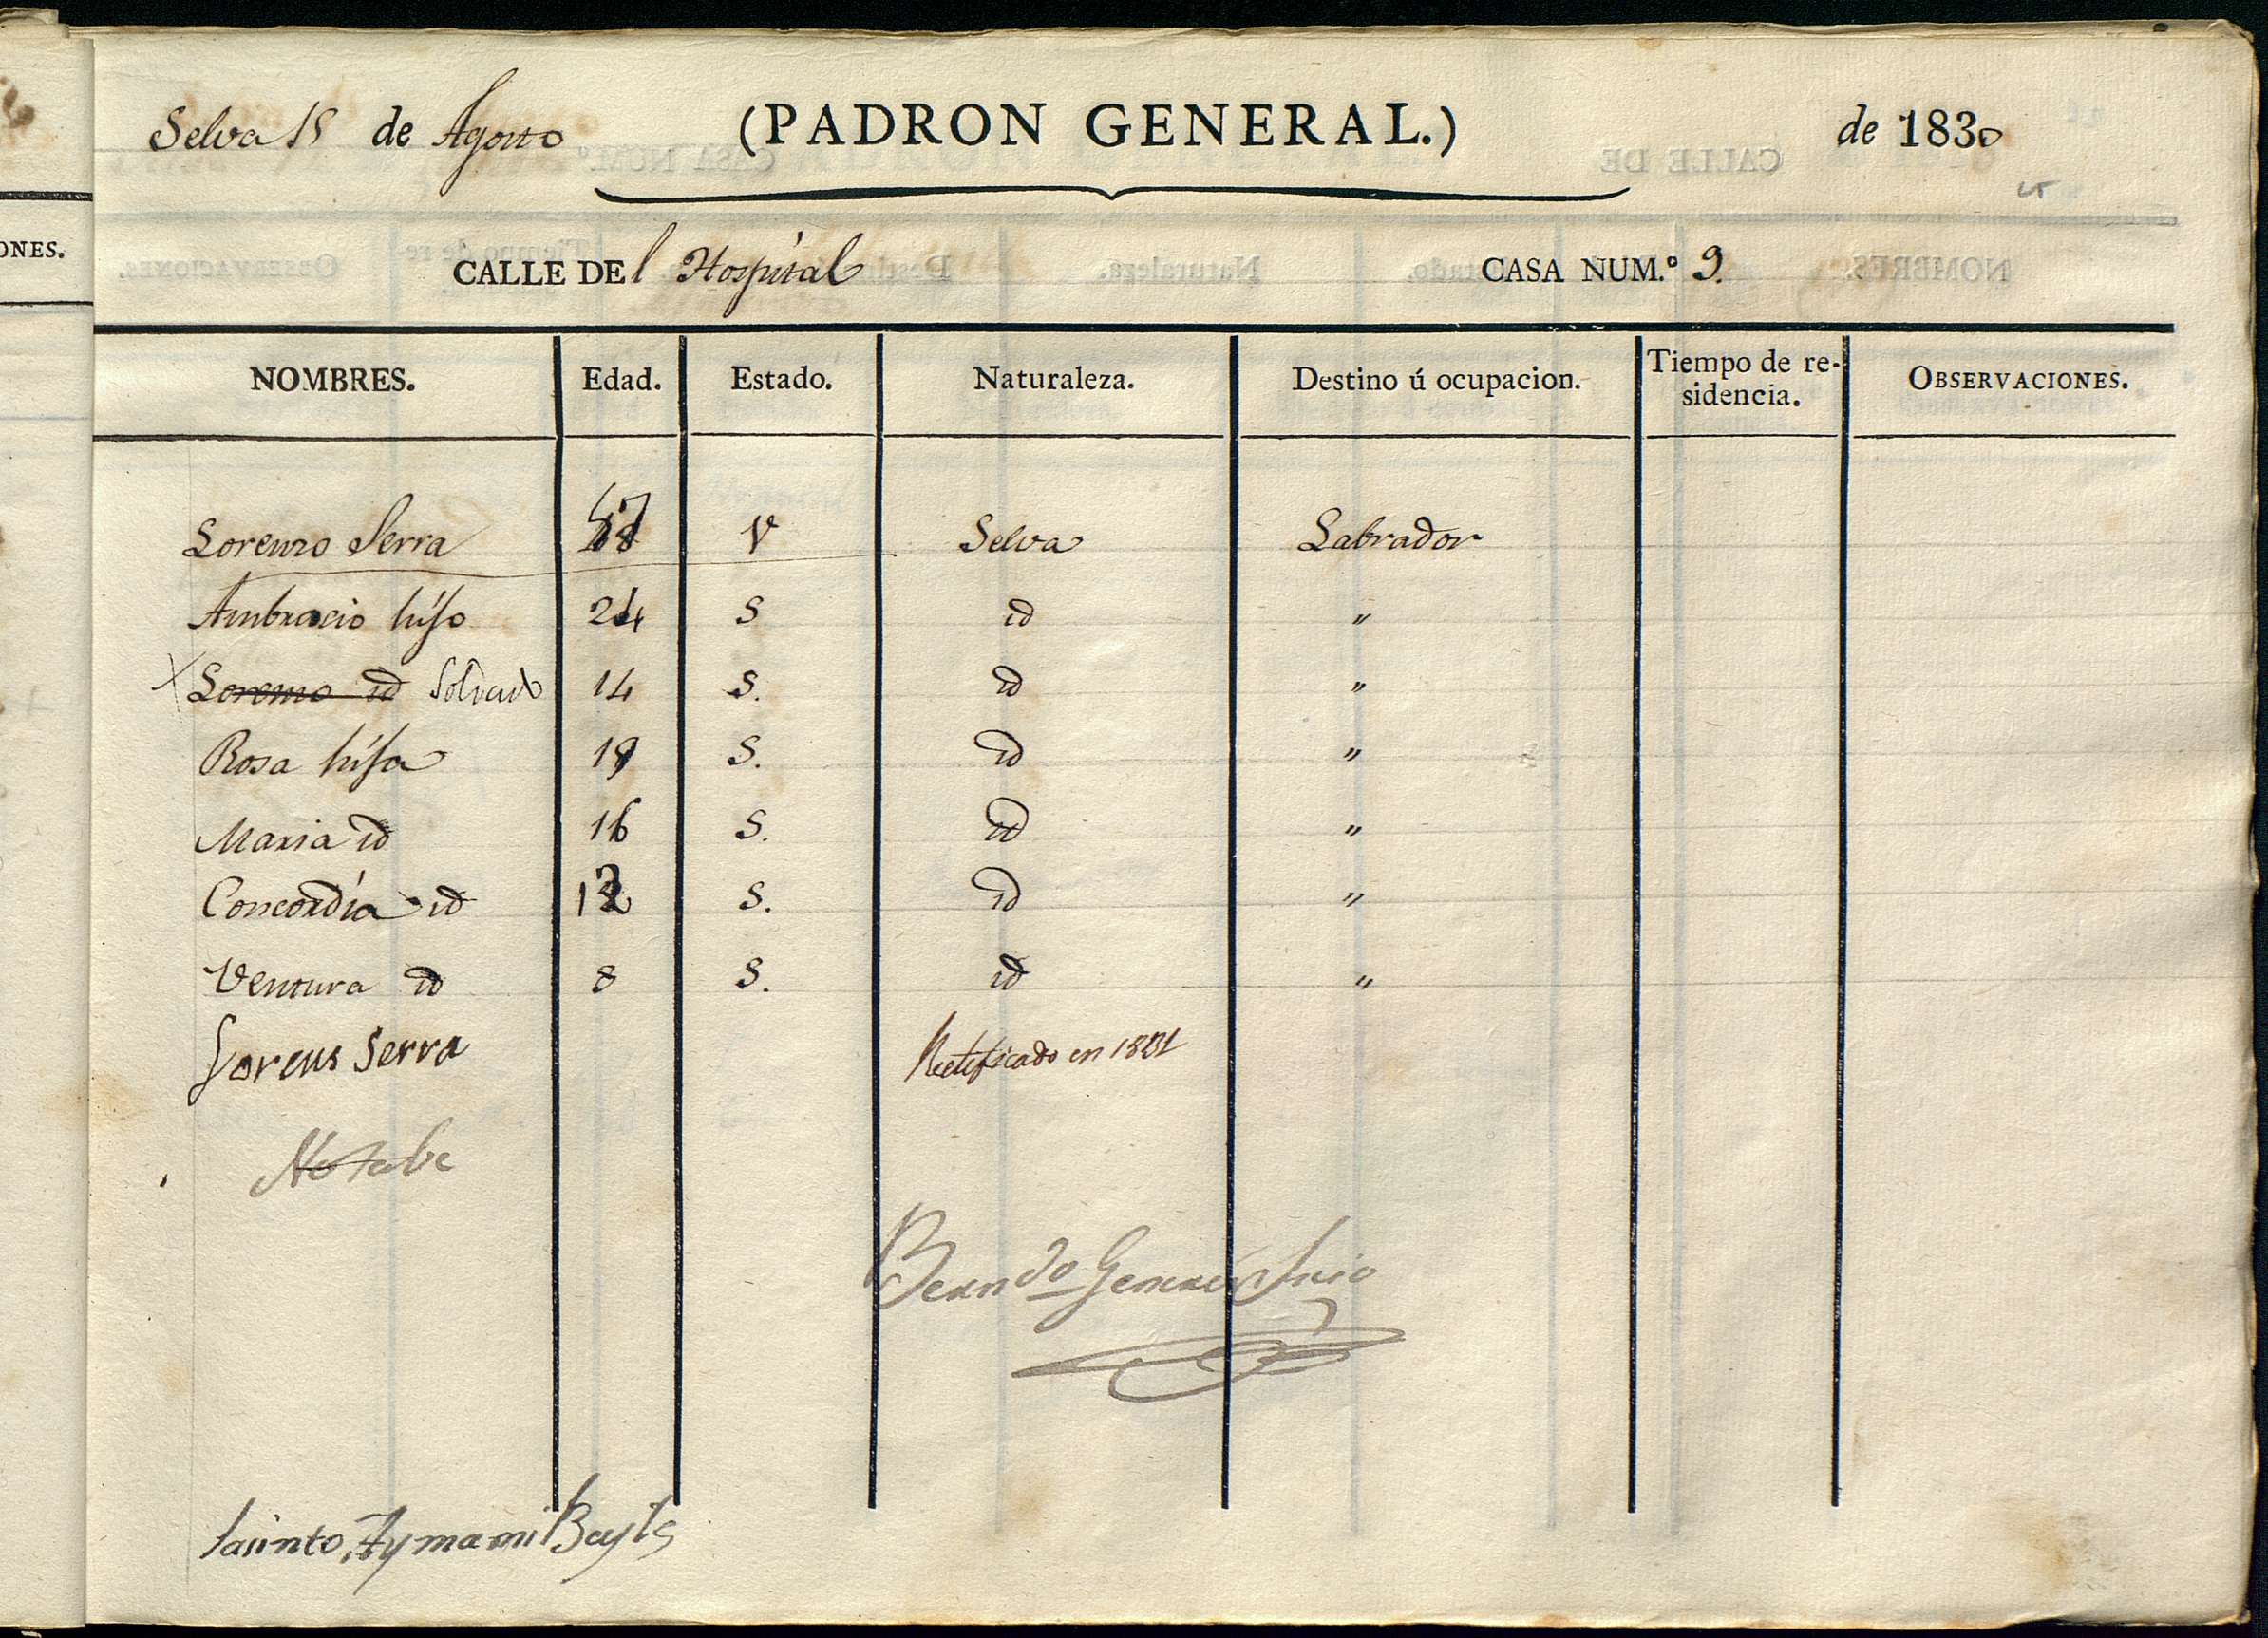 Selva 15 de Agosto (PADRON GENERAL.) de 1830
CALLE DEl Hospital CASA NUM.º 9.
NOMBRES. Edad. Estado. Naturaleza. Destino ú ocupacion. Tiempo de re-sidencia. OBSERVACIONES.
Lorenzo Serra V Selva Labrador
Ambrocio hijo 24 S id "
Lorenso id Soldado 14 S. id "
Rosa hija 19 S. id "
Maria id 16 S. id "
Concordia id S. id "
Ventura id 8 S. id "
Lorens Serra Rectificado en 1831
Notabe
Jasinto Aymami Bayle
ONES.